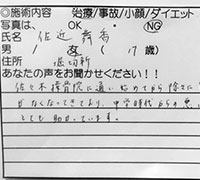 ◎施術内容　治療/事故/小顔/ダイエット
写真は、　OK・NG
氏名　佐近 舞香
男/女（17歳）
住所　堀切新
あなたの声をお聞かせください！！
佐々木接骨院に通い始めてから
がなくなってきており、中学時代からの
とても助かっています。